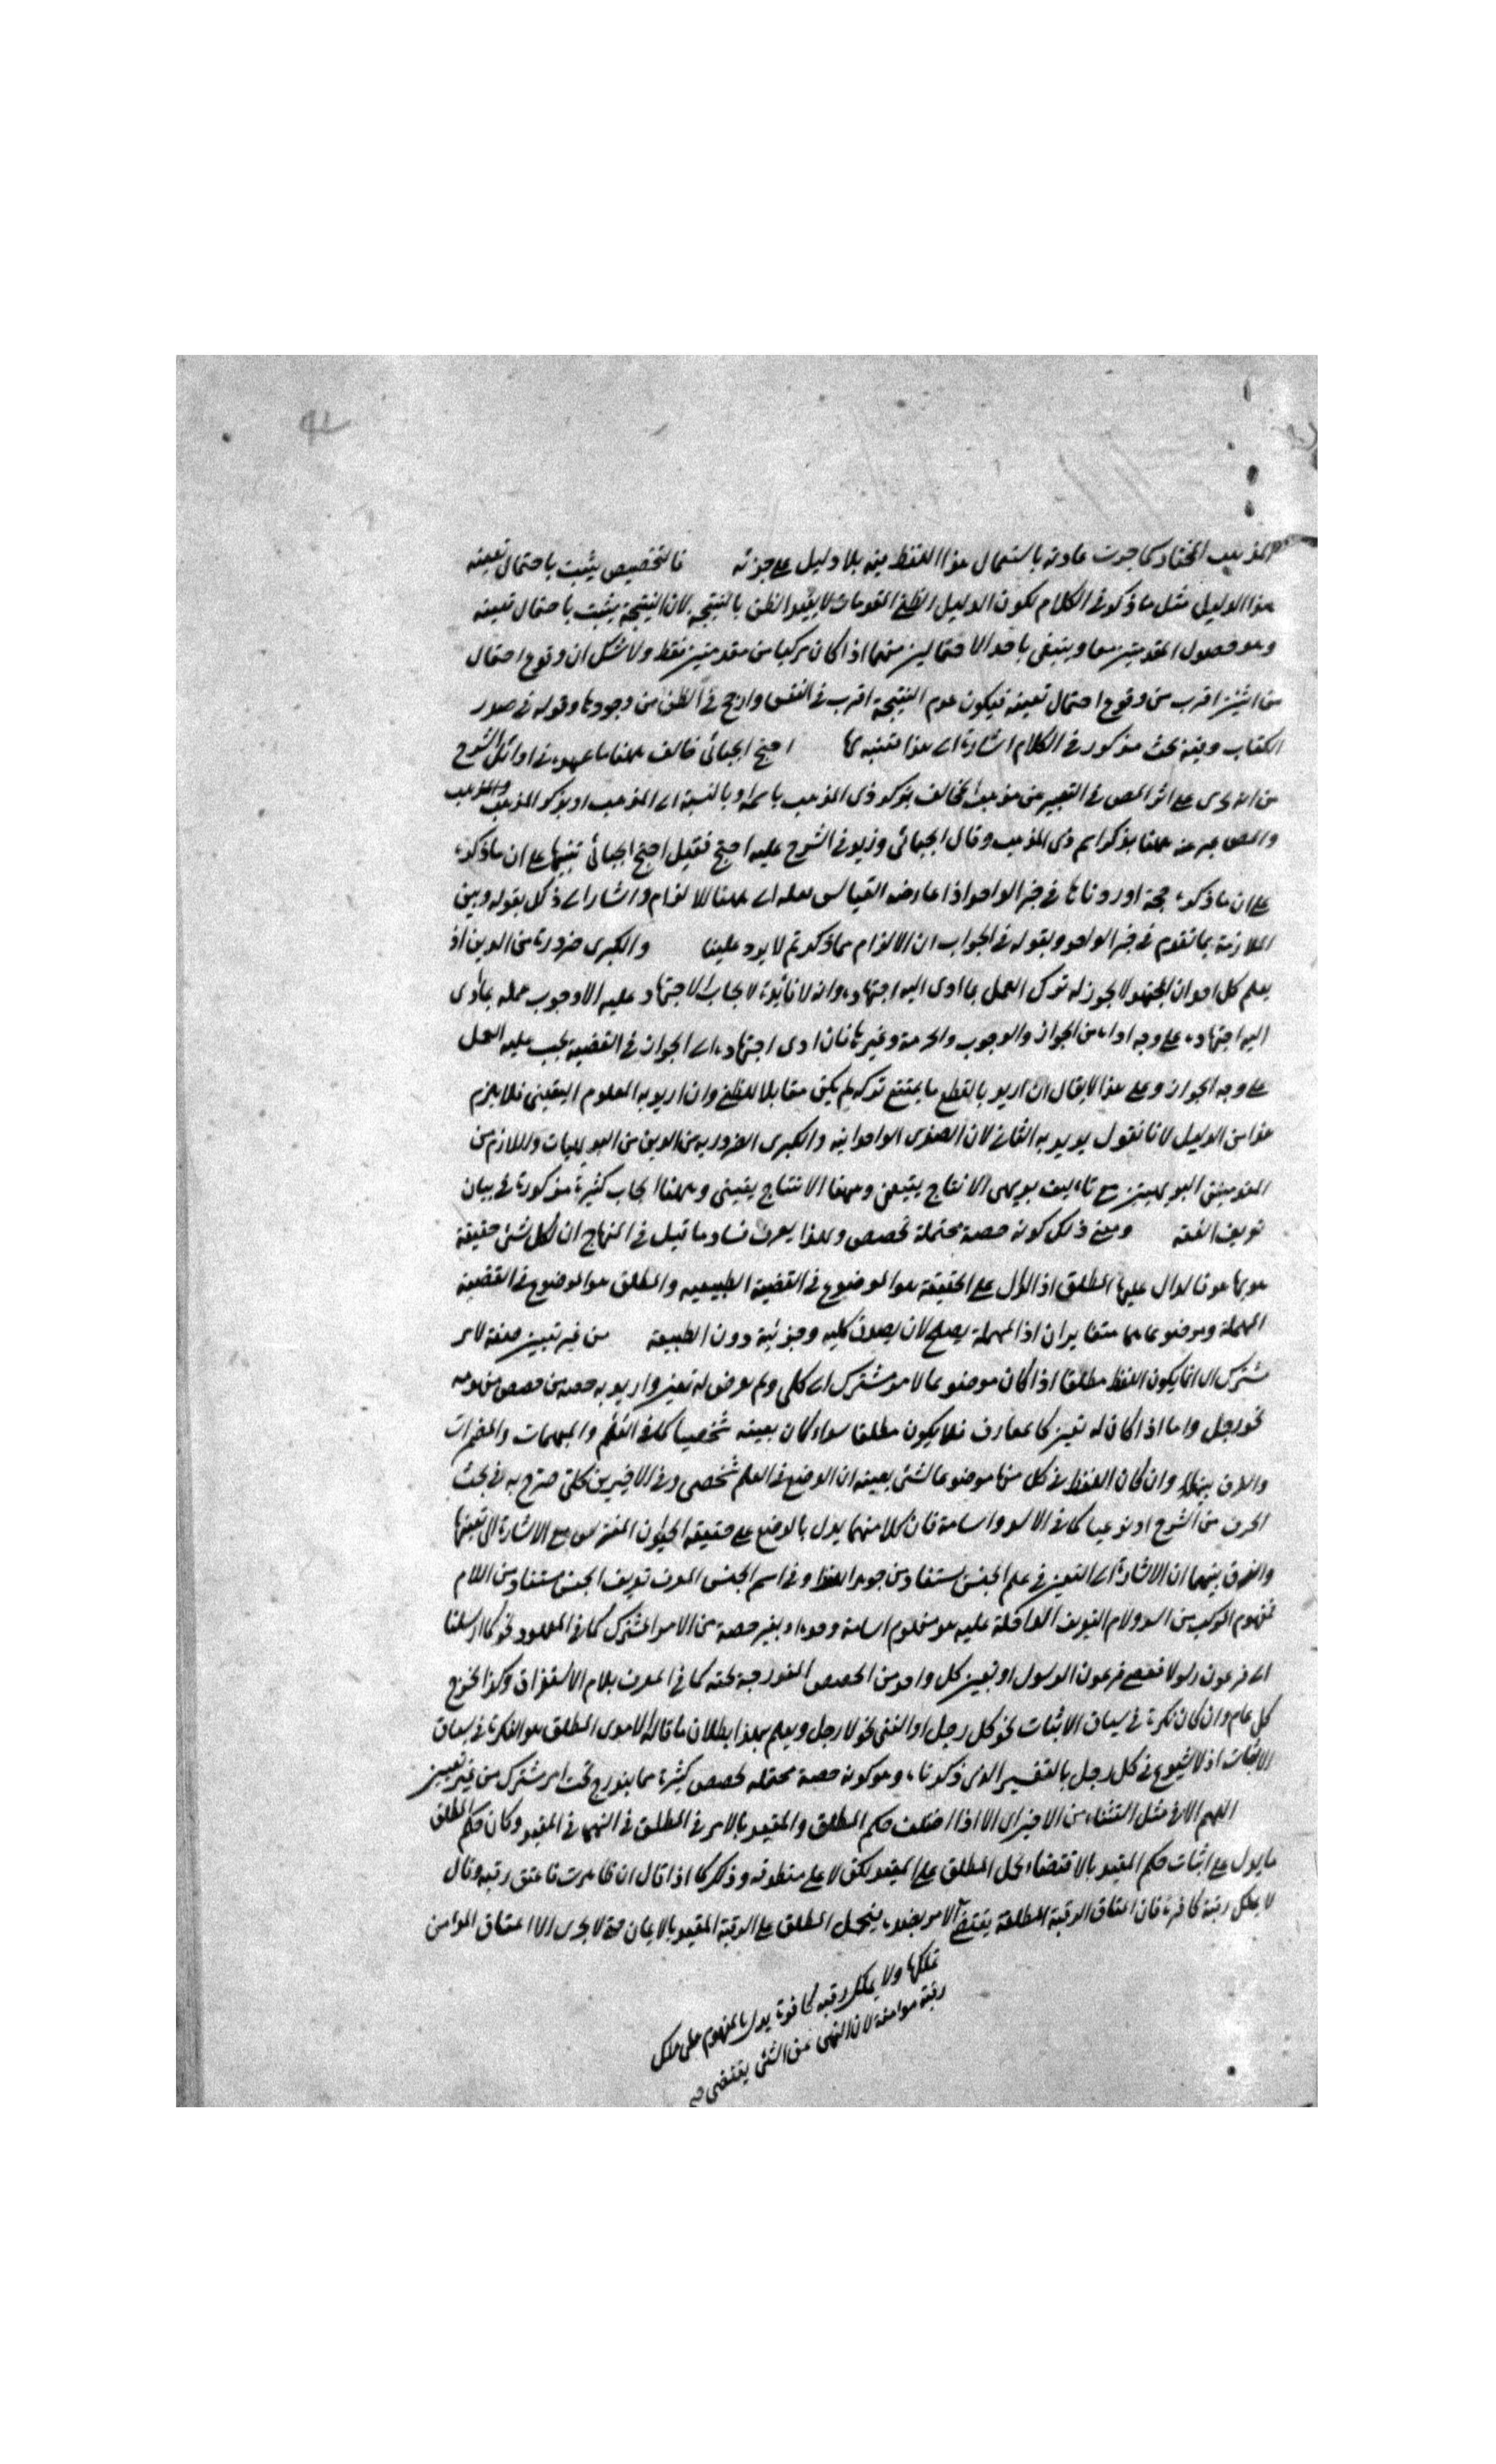 المذهب المختار كما جرت عادته باستعمال هذا اللفظ فيه بلا دليل على جزئه فالتخصيص يثبت باحتمال بعينه
هذا الدليل مثل ما ذكر في الكلام لكون الدليل الظني المقدمات لا يفيد الظن بالنتيجة لان النتيجة يثبت باحتمال بعينه
وهو حصول المقدمتين معا وينتفي باحد الاحتمالين منهما اذا كان مركبا من مقدمتين فقط ولا شك ان وقوع احتمال
من اثنين اقرب من وقوع احتمال بعينه فيكون عدم النتيجة اقرب في النفس وارجح في الظن من وجودها وقوله في صدر
الكتاب وفيه بحث مذكور في الكلام اشارة الى هذا فتنبه لها احتج الجبائي خالف ههنا ما عهده في اوائل الشرح
من انه جرى على اثر المص في التعبير عن مذهب المخالف بذكر ذي المذهب باسمه او بالنسبة الى المذهب او بذكر المذهب والمذهب
والمص عبر عنه ههنا بذكر اسم ذي المذهب وقال الجبائي وزيد في الشرح عليه احتج فقيل احتج الجبائي تنبيها على ان ما ذكره
على ان ما ذكره حجة اوردناها في خبر الواحد اذا عارضه القياس لعله الى ههنا للالزام واشار الى ذلك بقوله وبين
الملازمة بما تقدم في خبر الواحد وبقوله في الجواب ان الالزام مما ذكرتم لا يرد علينا والكبرى ضرورة من الدين اذ
يعلم كل احد ان المجتهد لا يجوز له ترك العمل بما ادى اليه اجتهاده وانه لا فائدة لايجاب الاجتهاد عليه الا وجوب عمله بما ادى
اليه اجتهاده على وجه اداه من الجواز والوجوب والحرمة وغيرها فان ادى اجتهاده الى الجواز في القضية يجب عليه العمل
على وجه الجواز وعلى هذا لا يقال ان اريد بالقطع ما يمتنع تركه لم يكن مقابلا للظن وان اريد به المعلوم اليقيني فلا يلزم
هذا من الدليل لانا نقول يريد به الثاني لان الصغرى الوجدانية والكبرى الضرورية من الدين من البديهيات واللازم من
المقدمتين البديهيتين مع تاليف بديهي الانتاج يقيني وههنا الانتاج يقيني وههنا ابحاث كثيرة مذكورة في بيان
تعريف الفقه ومعنى ذلك كونه حصة محتملة لحصص وبهذا يعرف فساد ما قيل في المنهاج ان لكل شئ حقيقة
هو بها هو فالدال عليها المطلق اذ الدال على الحقيقة هو الموضوع في القضية الطبيعية والمطلق هو الموضوع في القضية
المهملة وموضوعاهما متغايران اذ المهملة يصلح لان يصدق كلية وجزئية دون الطبيعة من غير تعيين صفة لامر
مشترك اي انما يكون اللفظ مطلقا اذا كان موضوعا لامر مشترك اي كلي ولم يعرض له تعين واريد به حصة من حصص مفهومه
نحو رجل واما اذا كان له تعين كالمعارف فلا يكون مطلقا سواء كان بعينه شخصيا كما في العلم والمبهمات والمضمرات
وان كان اللفظ في كل منها موضوعا لشئ بعينه ان الوضع في العلم شخصي وفي الاخيرين كلي صرح به في بحث
الحرف من الشرح او نوعيا كما في الاسد واسامة فان كلا منهما يدل بالوضع على حقيقة الحيوان المفترس مع الاشارة الى تعينها
والفرق بينهما ان الاشارة الى التعين في علم الجنس مستفاد من جوهر اللفظ وفي اسم الجنس المعرف تعريف الجنس مستفاد من اللام
فمفهوم المركب من اسد ولام التعريف الداخلة عليه هو مفهوم اسامة وحده او بغير حصة من الامر المشترك كما في المعهود نحو كما ارسلنا
الى فرعون رسولا فعصى فرعون الرسول او تعين كل واحد من الحصص المندرجة تحته كما في المعرف بلام الاستغراق وكذا الخرج
كل عام وان كان نكرة في سياق الاثبات نحو كل رجل او النفي نحو لا رجل ويعلم بهذا بطلان ما قاله الامدي المطلق هو النكرة في سياق
الاثبات اذ لا شيوع في كل رجل بالتفسير الذي ذكرناه وهو كونه حصة محتملة لحصص كثيرة مما يندرج تحت امر مشترك من غير تعيين
اللهم الا في مثل استثناء من الاخير اي الا اذا اختلف حكم المطلق والمقيد بالامر في المطلق في النهى في المقيد وكان حكم المطلق
ما يدل على اثبات حكم المقيد بالاقتضاء يحمل المطلق على المقيد لكن لا على منطوقه وذلك كما اذا قال ان ظاهرت فاعتق رقبة وقال
لا يملك رقبة كافرة فان اعتاق الرقبة المطلقة يقتضي الامر بضده فيحمل المطلق على الرقبة المقيد بالايمان حتى لا يجزى الا اعتاق المؤمن
تملكها ولا يملك رقبة كافرة يدل بالمفهوم على ملك
رقبة مؤمنة لان النهى عن الشئ يقتضى